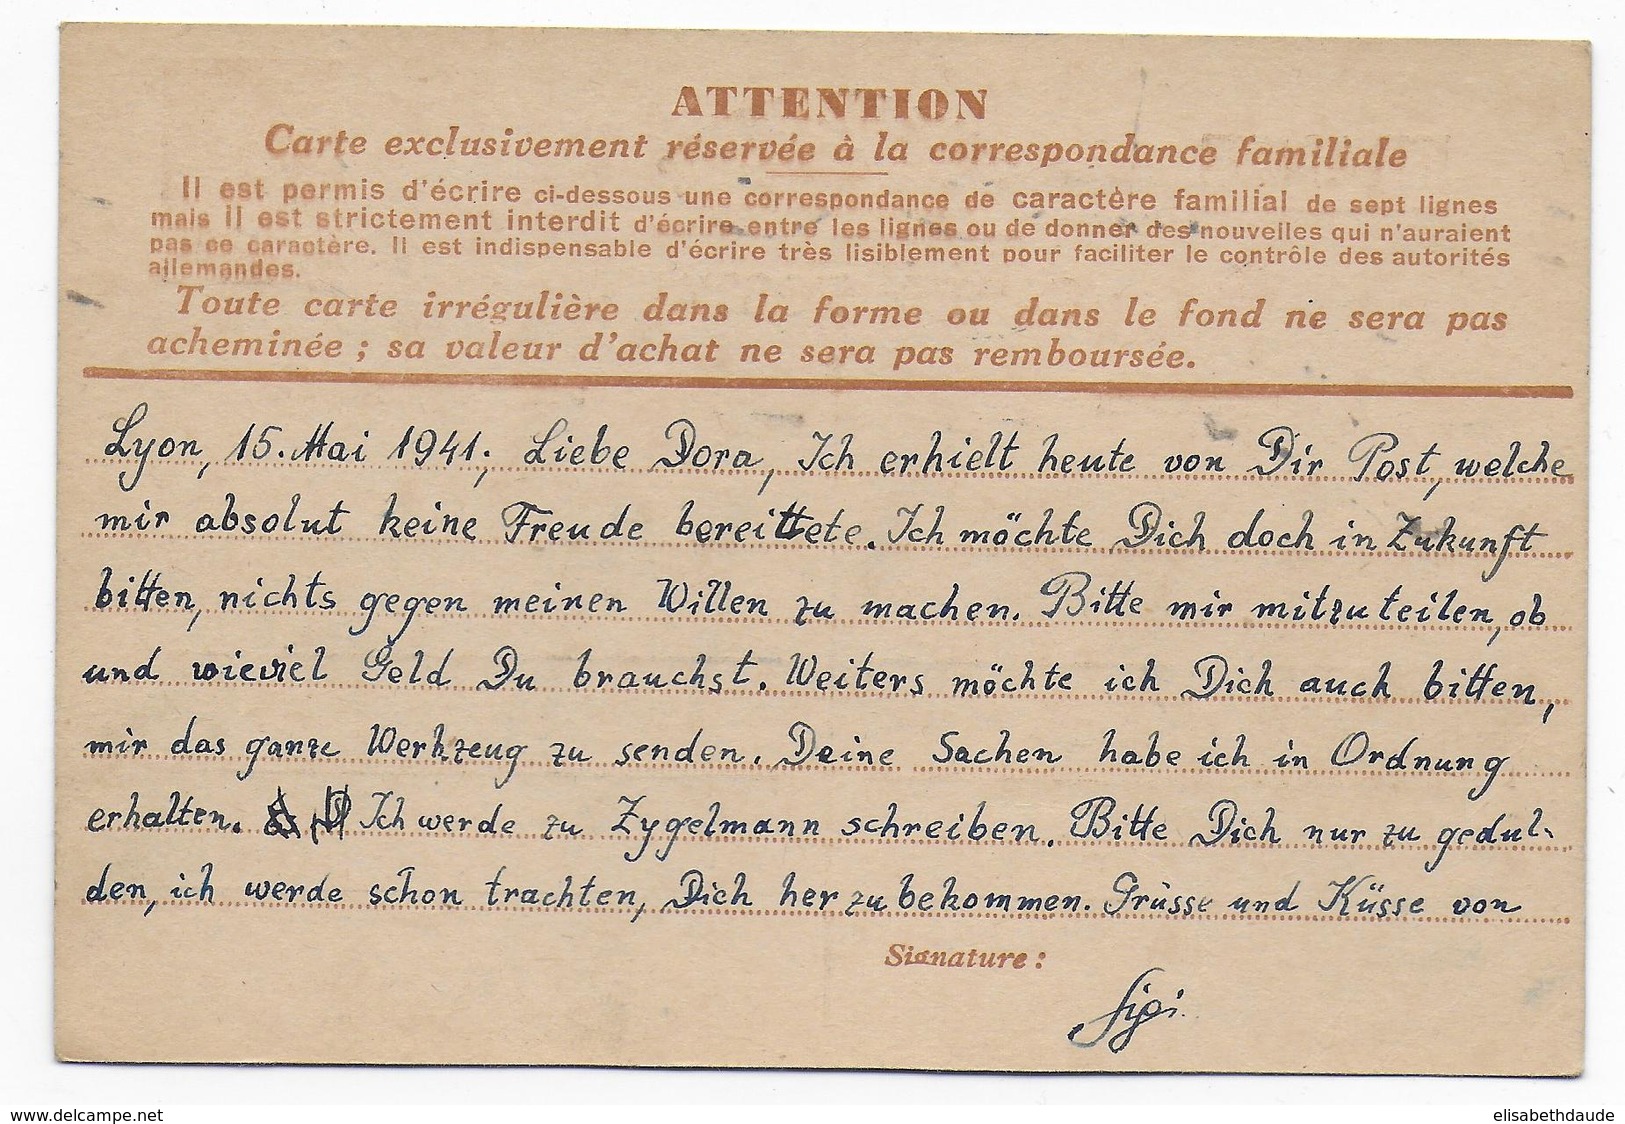 ATTENTION
Carte exclusivement réservée à la correspondance familiale
Il est permis d'écrire ci-dessous une correspondance de caractère familial de sept lignes
mais il est strictement interdit d'écrire entre les lignes ou de donner des nouvelles qui n'auraient
pas ce caractère. Il est indispensable d'écrire très lisiblement pour faciliter le contrôle des autorités
allemandes.
Toute carte irrégulière dans la forme ou dans le fond ne sera pas
acheminée ; sa valeur d'achat ne sera pas remboursée.
Lyon, 15. Mai 1941; Liebe Dora, Ich erhielt heute von Dir Post, welche
mir absolut keine Freude bereittete. Ich möchte Dich doch in Zukunft
bitten, nichts gegen meinen Willen zu machen. Bitte mir mitzuteilen, ob
und wieviel Geld Du brauchst. Weiters möchte ich Dich auch bitten,
mir das ganze Werkzeug zu senden. Deine Sachen habe ich in Ordnung
erhalten. Ich werde zu Zygelmann schreiben. Bitte Dich nur zu gedul-
den, ich werde schon trachten, Dich herzubekommen. Grüsse und Küsse von
Signature :
Sigi
www.delcampe.net
elisabethdaude